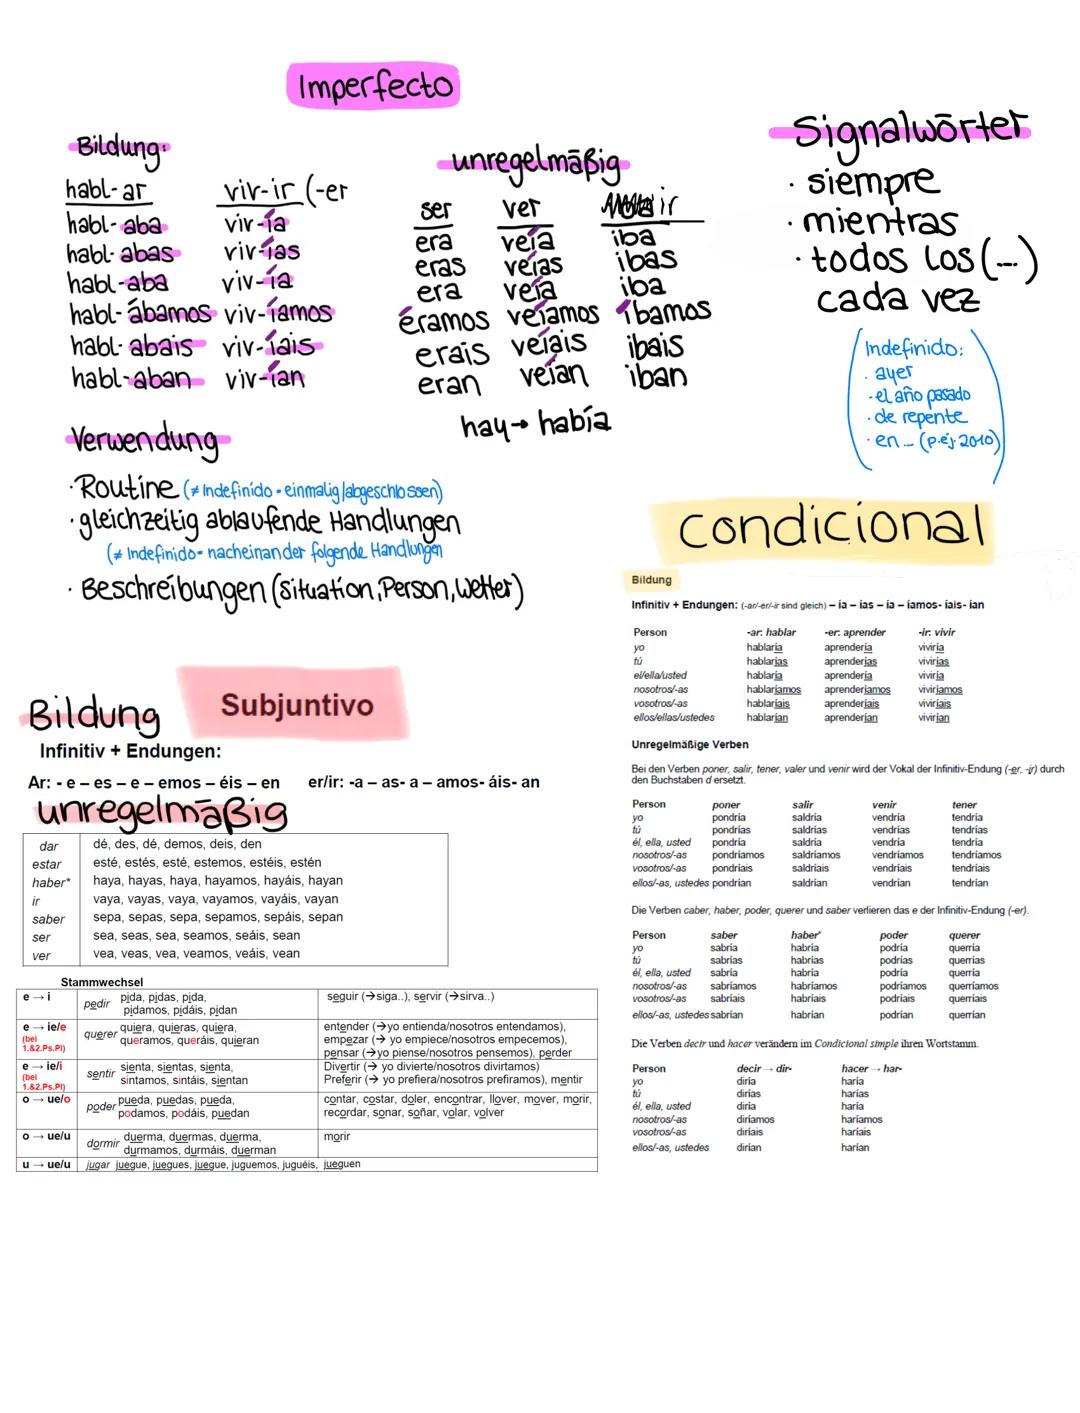 Imperfecto
Bildung:
habl-ar
habl-aba
habl-abas
habl-aba
habl-ábamos
habl-abais
habl-aban
viv-ir (-er
viv-ía
viv-ías
viv-ía
viv-íamos
viv-íais
viv-ían
unregelmäßig
ser ver ir
era veía iba
eras veías ibas
era veía iba
éramos veíamos íbamos
erais veíais ibais
eran veían iban
hay → había
Signalwörter
· siempre
· mientras
· todos los (...)
cada vez
Indefinido:
· ayer
· el año pasado
· de repente
· en ... (p.ej. 2010)
Verwendung
· Routine (≠ Indefinido - einmalig/abgeschlossen)
· gleichzeitig ablaufende Handlungen
(≠ Indefinido - nacheinander folgende Handlungen
· Beschreibungen (Situation, Person, Wetter)
Subjuntivo
Bildung
Infinitiv + Endungen:
Ar: - e – es – e – emos – éis – en er/ir: -a – as- a – amos- áis- an
unregelmäßig
dar dé, des, dé, demos, deis, den
estar esté, estés, esté, estemos, estéis, estén
haber* haya, hayas, haya, hayamos, hayáis, hayan
ir vaya, vayas, vaya, vayamos, vayáis, vayan
saber sepa, sepas, sepa, sepamos, sepáis, sepan
ser sea, seas, sea, seamos, seáis, sean
ver vea, veas, vea, veamos, veáis, vean
Stammwechsel
e → i
pedir
pida, pidas, pida,
pidamos, pidáis, pidan
seguir (→siga..), servir (→sirva..)
e → ie/e
(bei
1.&2.Ps.Pl)
querer
quiera, quieras, quiera,
queramos, queráis, quieran
entender (→yo entienda/nosotros entendamos),
empezar (→ yo empiece/nosotros empecemos),
pensar (→yo piense/nosotros pensemos), perder
e → ie/i
(bei
1.&2.Ps.Pl)
sentir
sienta, sientas, sienta,
sintamos, sintáis, sientan
Divertir (→ yo divierte/nosotros divirtamos)
Preferir (→ yo prefiera/nosotros prefiramos), mentir
o → ue/o
poder
pueda, puedas, pueda,
podamos, podáis, puedan
contar, costar, doler, encontrar, llover, mover, morir,
recordar, sonar, soñar, volar, volver
o → ue/u
dormir
duerma, duermas, duerma,
durmamos, durmáis, duerman
morir
u → ue/u jugar juegue, juegues, juegue, juguemos, juguéis, jueguen
condicional
Bildung
Infinitiv + Endungen: (-ar/-er/-ir sind gleich) – ía – ías – ía – íamos- íais- ían
Person -ar: hablar -er: aprender -ir: vivir
yo hablaría aprendería viviría
tú hablarías aprenderías vivirías
el/ella/usted hablaría aprendería viviría
nosotros/-as hablaríamos aprenderíamos viviríamos
vosotros/-as hablaríais aprenderíais viviríais
ellos/ellas/ustedes hablarían aprenderían vivirían
Unregelmäßige Verben
Bei den Verben poner, salir, tener, valer und venir wird der Vokal der Infinitiv-Endung (-er, -ir) durch
den Buchstaben d ersetzt.
Person poner salir venir tener
yo pondría saldría vendría tendría
tú pondrías saldrías vendrías tendrías
él, ella, usted pondría saldría vendría tendría
nosotros/-as pondríamos saldríamos vendríamos tendríamos
vosotros/-as pondríais saldríais vendríais tendríais
ellos/-as, ustedes pondrían saldrían vendrían tendrían
Die Verben caber, haber, poder, querer und saber verlieren das e der Infinitiv-Endung (-er).
Person saber haber* poder querer
yo sabría habría podría querría
tú sabrías habrías podrías querrías
él, ella, usted sabría habría podría querría
nosotros/-as sabríamos habríamos podríamos querríamos
vosotros/-as sabríais habríais podríais querríais
ellos/-as, ustedes sabrían habrían podrían querrían
Die Verben decir und hacer verändern im Condicional simple ihren Wortstamm.
Person decir → dir- hacer → har-
yo diría haría
tú dirías harías
él, ella, usted diría haría
nosotros/-as diríamos haríamos
vosotros/-as diríais haríais
ellos/-as, ustedes dirían harían